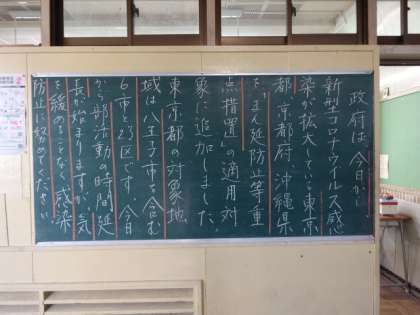 政府は、今日から、
新型コロナウイルス感
染が拡大している東京
都、京都府、沖縄県
を「まん延防止等重
点措置」の適用対
象に追加しました。
東京都の対象地
域は八王子市を含む
6市と23区です。今日
から部活動の時間延
長が始まりますが、気
を緩めることなく感染
防止に努めてください。